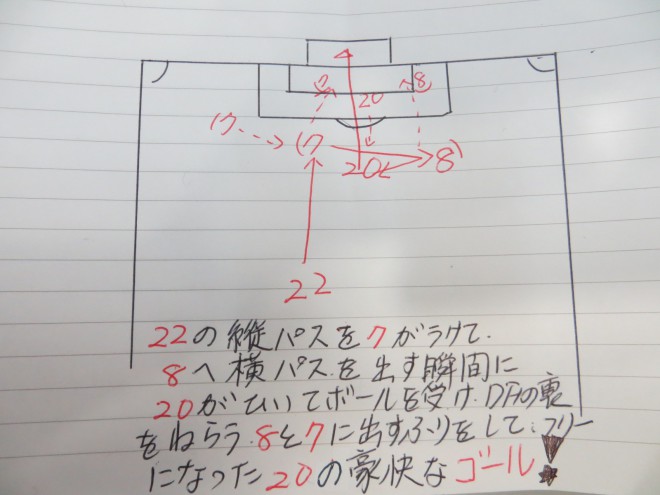 7
20
8
7
7
20
8
22
22の縦パスを7がうけて.
8へ横パスを出す瞬間に
20がひいてボールを受け.DFの裏
をねらう8と7に出すふりをして、フリー
になった20の豪快なゴール!